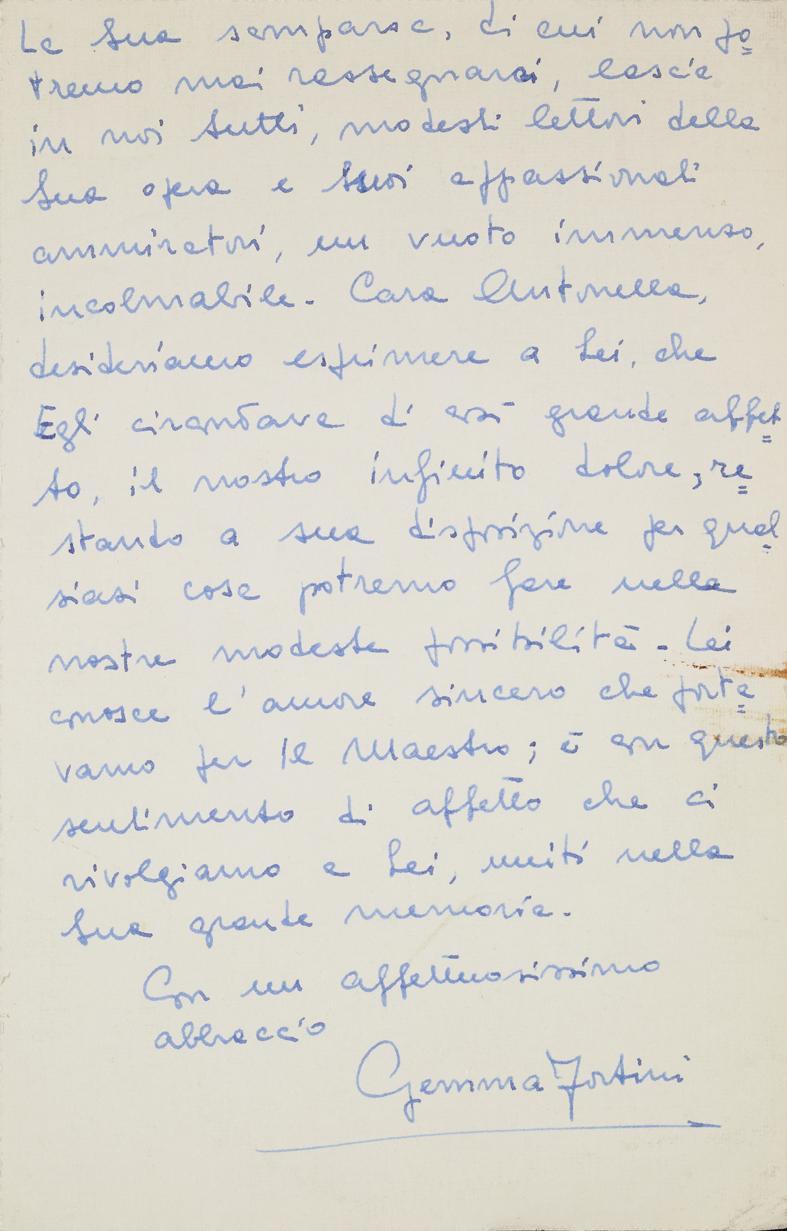 La Sua scomparsa, di cui non po=
tremo mai rassegnarci, lascia
in noi tutti, modesti lettori della
Sua opera e Suoi appassionati
ammiratori, un vuoto immenso,
incolmabile. Cara Antonella,
desideriamo esprimere a Lei, che
Egli circondava di così grande affet=
to, il nostro infinito dolore, re=
stando a sua disposizione per qual
siasi cosa potremo fare nella
nostre modeste possibilità. Lei
conosce l'amore sincero che porta=
vamo per Il Maestro; è con questo
sentimento di affetto che ci
rivolgiamo a Lei, uniti nella
Sua grande memoria.
Con un affettuosissimo
abbraccio
Gemma Fortini